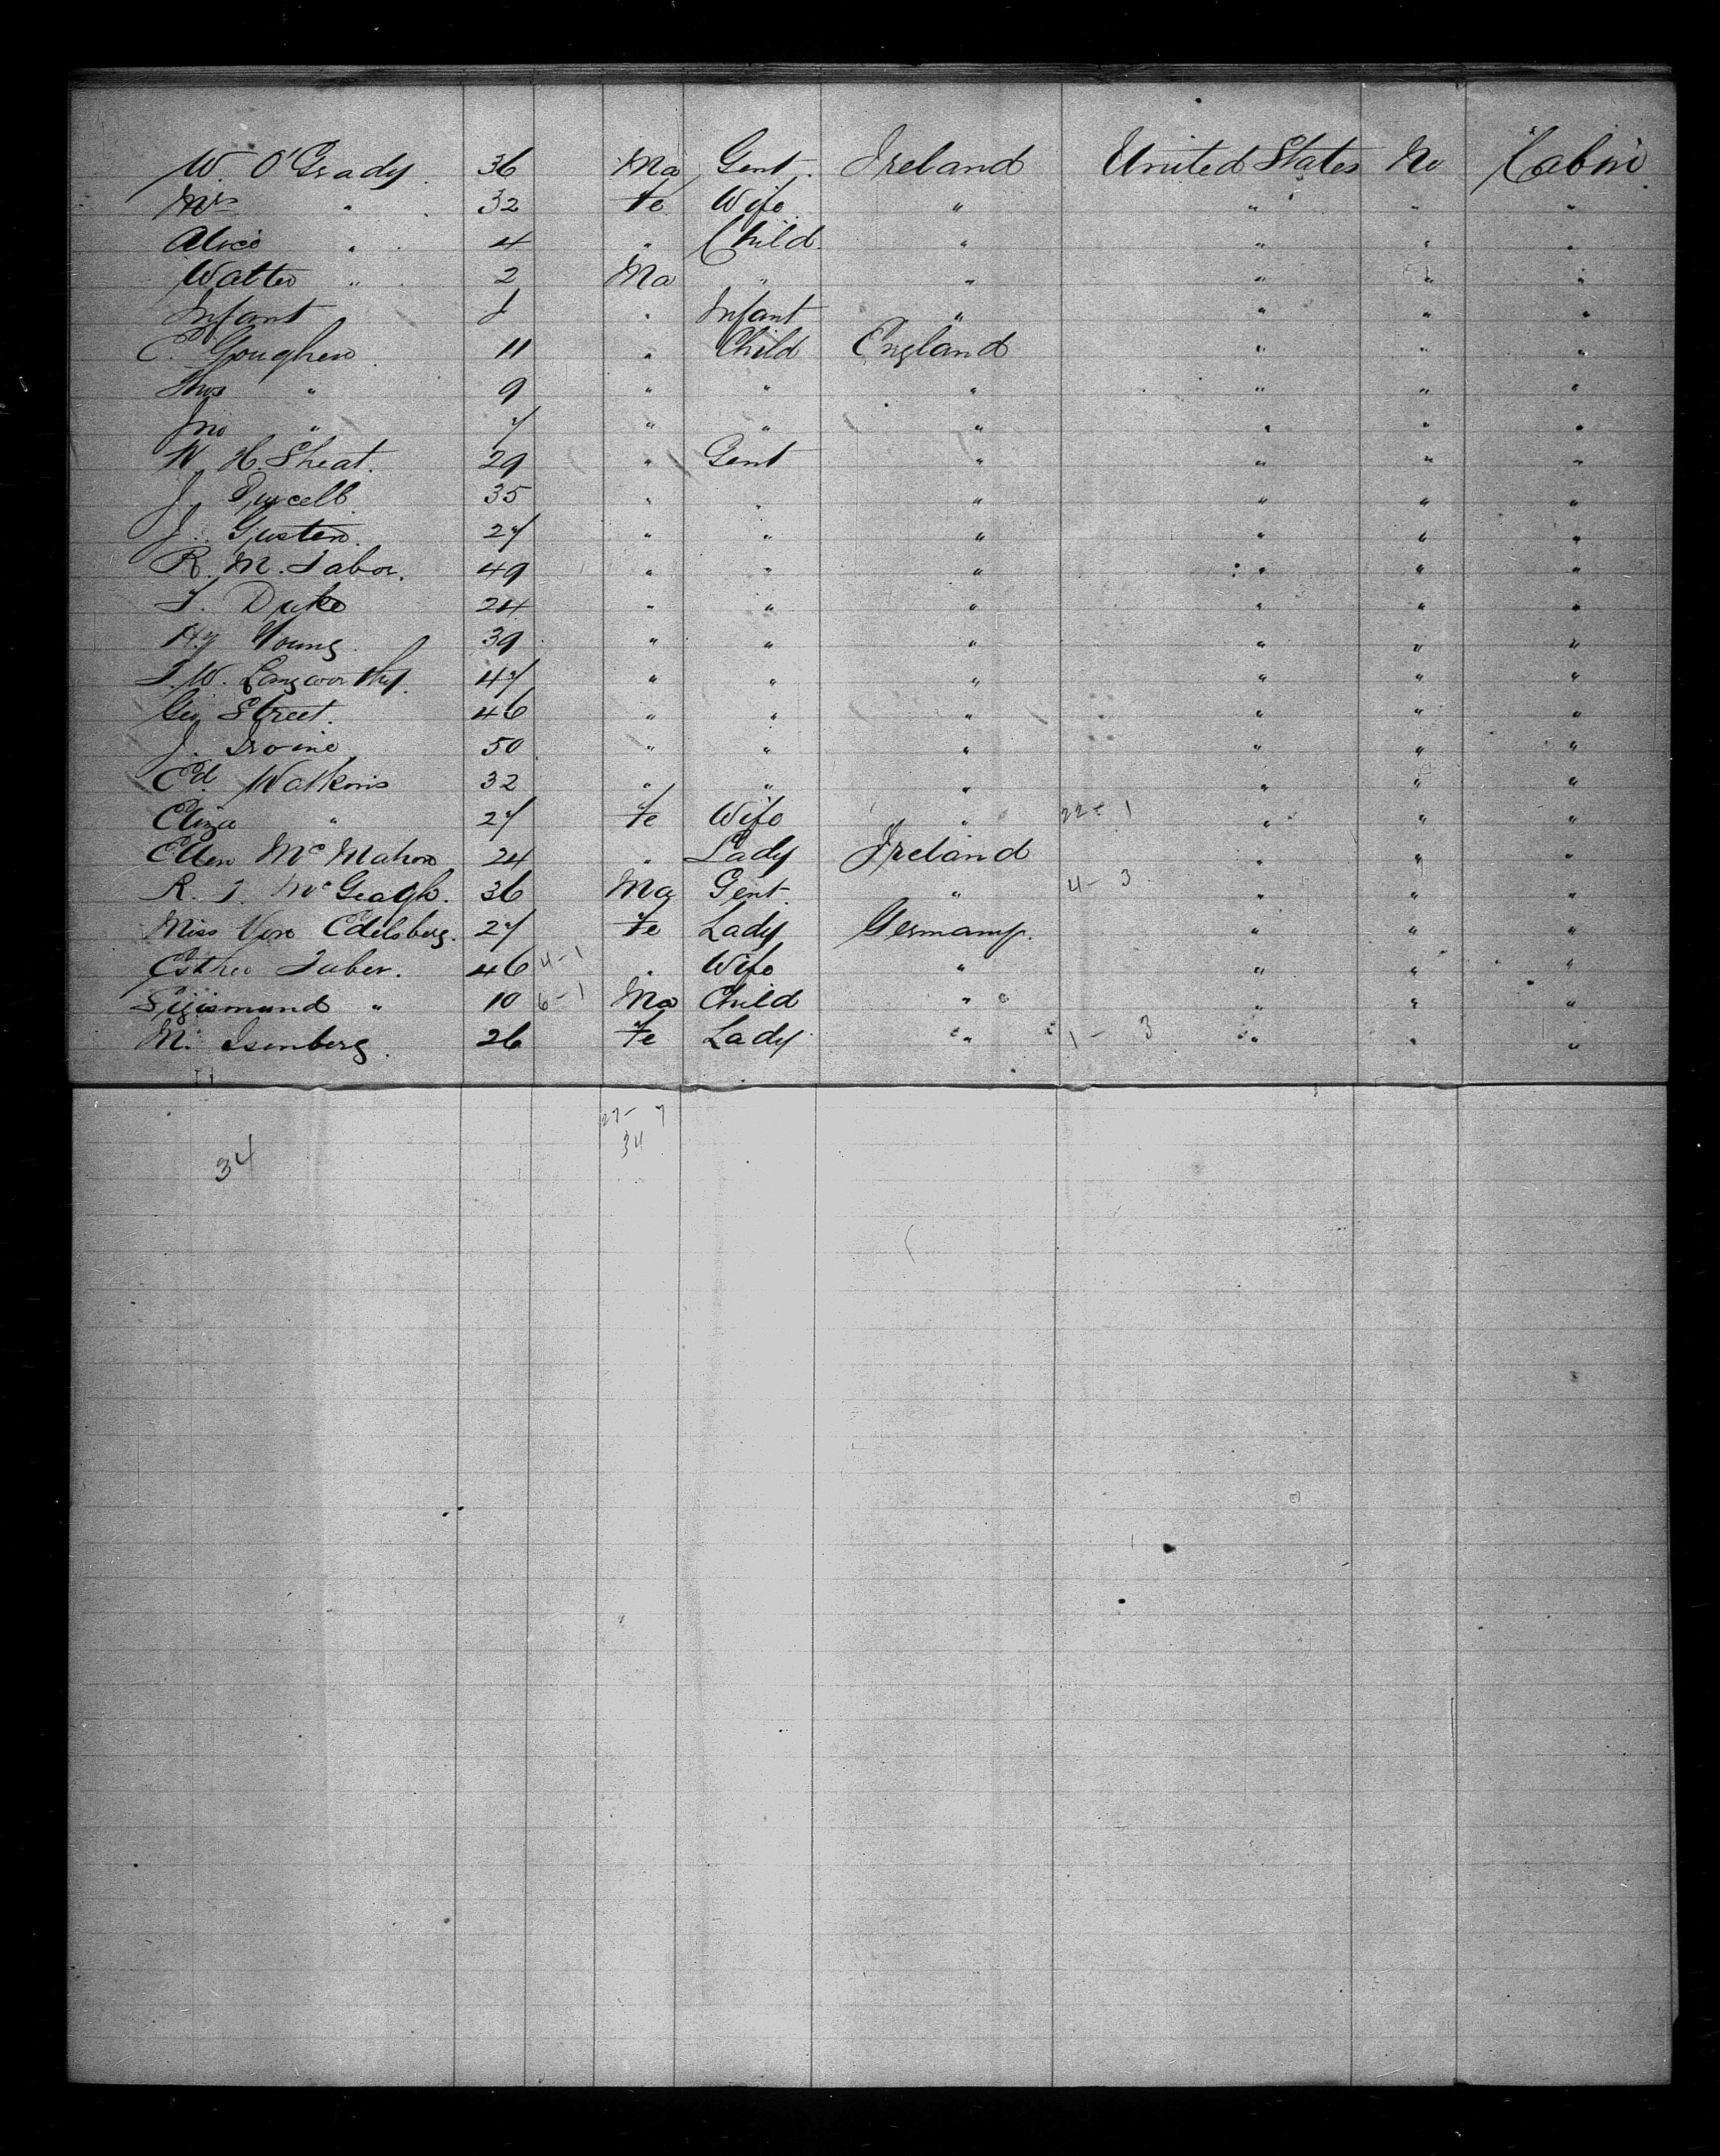 W. O'Grady. 36 Ma Gent. Ireland United States No Cabin
Mrs " 32 Fe Wife " " " "
Alice " 4 " Child " " " "
Walter " 2 Ma " " " " "
Infant " Infant " " " "
C. Goughen 11 " Child England " " "
Thos " 9 " " " " " "
Jno " 7 " " " " " "
W. H. Sheat. 29 " Gent " " " "
J. Purcell. 35 " " " " " "
J. Gusten. 27 " " " " " "
R. M. Tabor. 49 " " " " " "
T. Duke 24 " " " " " "
Hy Young. 39 " " " " " "
T. W. Langworthy. 47 " " " " " "
Geo Street. 46 " " " " " "
J. Irvine 50 " " " " " "
Ed. Watkins 32 " " " " " "
Eliza " 27 Fe Wife " 22- 1 " " "
Ellen McMahon 24 " Lady Ireland " " "
R. J. McGeagh. 36 Ma Gent. " 4- 3 " " "
Miss Von Edelsberg. 27 Fe Lady Germany. " " "
Esther Taber. 46 4-1 " Wife " " " "
Sigismund " 10 6-1 Ma Child " " " "
M. Isenberg. 26 Fe Lady " 1- 3 " " "
27- 7
34
34